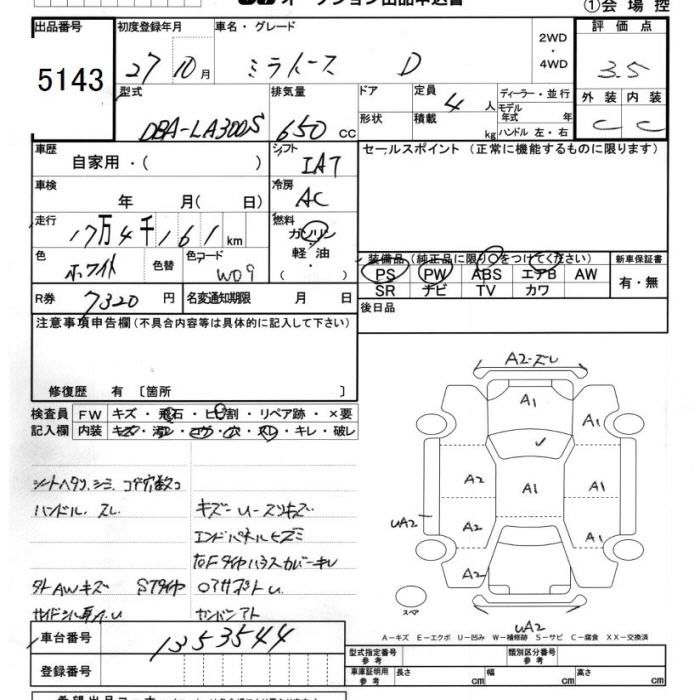 オークション出品申込書
①会場控
出品番号 初度登録年月 車名・グレード 2WD・4WD 評価点
5143 27 10月 ミライース D 3.5
型式 排気量 ドア 定員 ディーラー・並行 外装 内装
DBA-LA300S 650 cc 4 人 モデル年式 年 C C
形状 積載 kg ハンドル 左・右
車歴 シフト セールスポイント(正常に機能するものに限ります)
自家用・( ) IAT
車検 冷房
年 月(日) AC
走行 燃料
17万4千161km ガソリン
軽油
( )
色 色替 色コード
ホワイト W09
装備品(純正品に限り○をつけてください) 新車保証書
PS PW ABS エアB AW 有・無
SR ナビ TV カワ
R券 7320円 名変通知期限 月 日
後日品
注意事項申告欄(不具合内容等は具体的に記入して下さい)
修復歴 有〔箇所 〕
検査員 FW キズ・飛石・ヒビ割・リペア跡・×要
記入欄 内装 キズ・汚レ・コゲ・穴・スレ・キレ・破レ
シートヘタリ、シミ、コゲ穴数コ
ハンドル、スレ
キズーUースリキズ
エンドパネルヒズミ
外AWキズ Sタイヤ
A2-スレ
A1
A1
A2 A1 A1
UA2 A2 A1
A2
スペア
UA2
A-キズ E-エクボ U-凹み W-補修跡 S-サビ C-腐食 XX-交換済
車台番号 1353544
登録番号
型式指定番号 参考 類別区分番号 参考
車庫証明用 参考 長さ cm 幅 cm 高さ cm